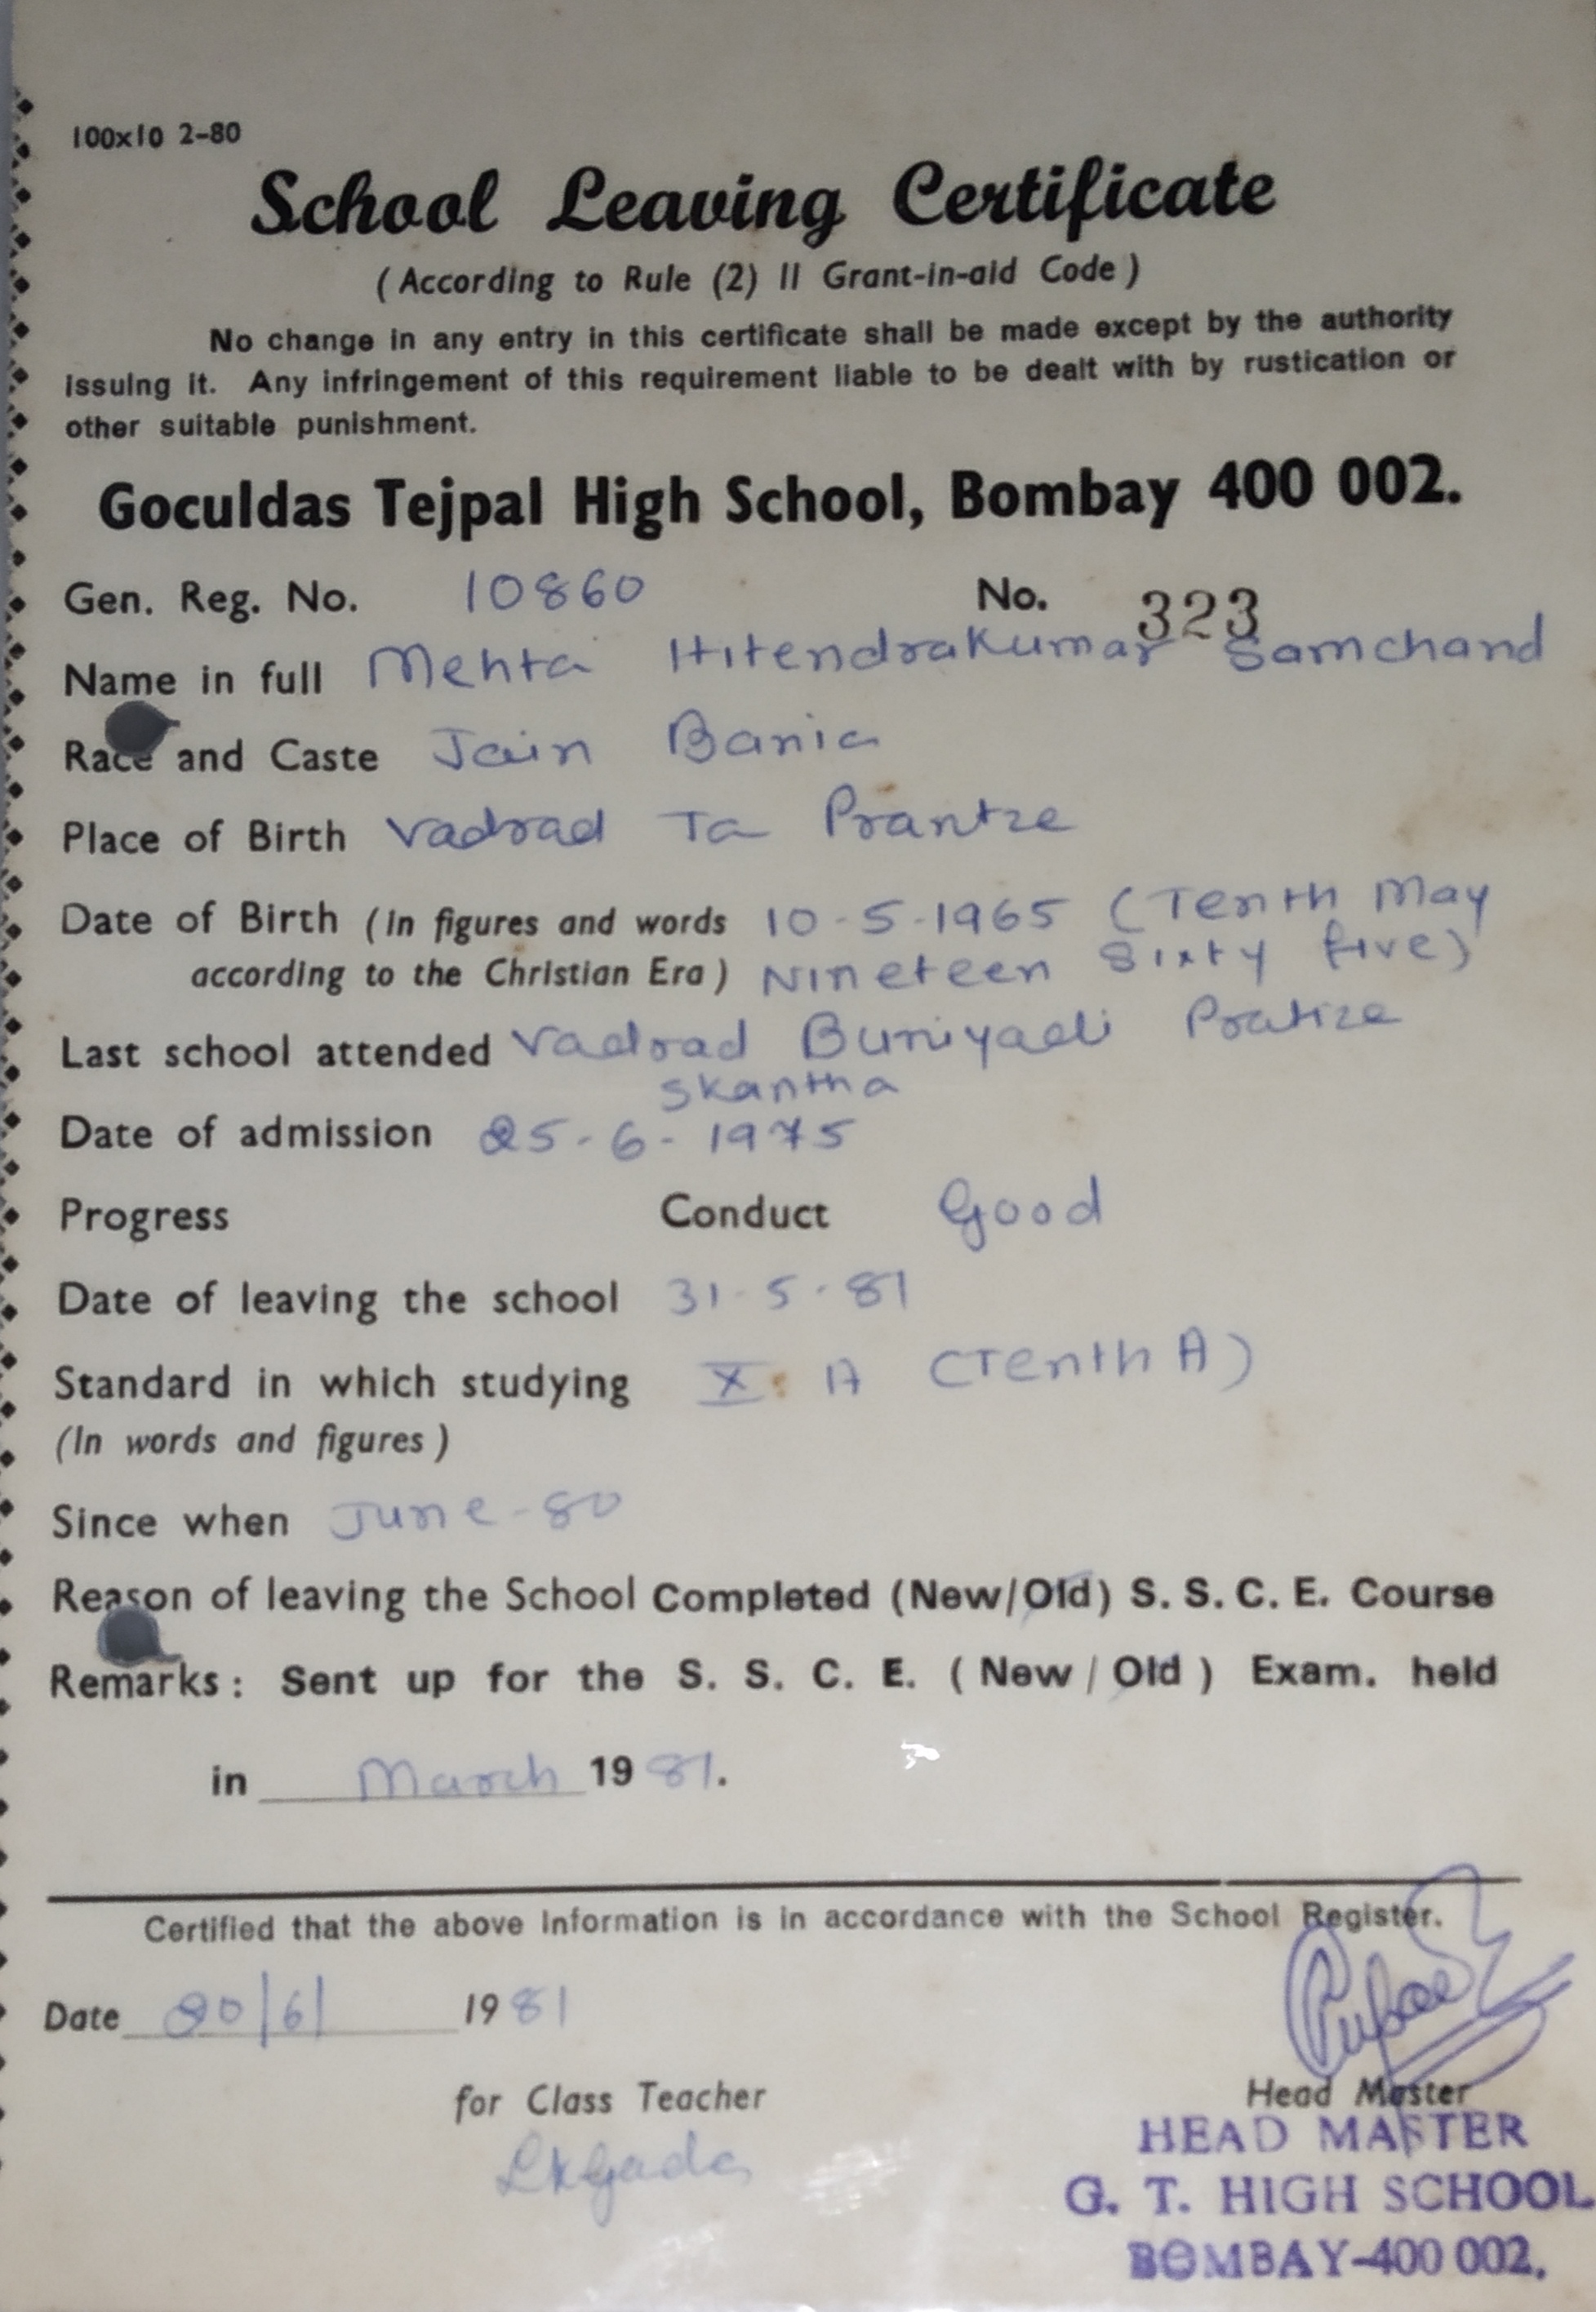 100x10 2-80
School Leaving Certificate
( According to Rule (2) II Grant-in-aid Code )
No change in any entry in this certificate shall be made except by the authority
issuing it. Any infringement of this requirement liable to be dealt with by rustication or
other suitable punishment.
Goculdas Tejpal High School, Bombay 400 002.
Gen. Reg. No. 10860 No. 323
Name in full Mehta Hitendrakumar Samchand
Race and Caste Jain Bania
Place of Birth Vadrad Ta Prantze
Date of Birth (In figures and words 10-5-1965 (Tenth May
according to the Christian Era) Nineteen Sixty five)
Last school attended Vadrad Buniyadi Pratize
Skantha
Date of admission 25-6-1975
Progress Conduct Good
Date of leaving the school 31-5-81
Standard in which studying X A (Tenth A)
(In words and figures)
Since when June-80
Reason of leaving the School Completed (New/Old) S. S. C. E. Course
Remarks : Sent up for the S. S. C. E. ( New / Old ) Exam. held
in March 1981.
Certified that the above Information is in accordance with the School Register.
Date /6/ 1981
for Class Teacher Head Master
HEAD MASTER
G. T. HIGH SCHOOL
BOMBAY-400 002.